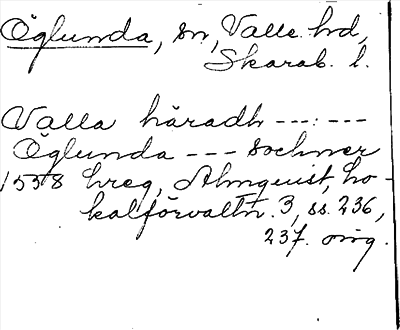 Öglunda, sn, Valle hd,
Skarab. l.
Valla häradh ---:---
Öglunda --- sochner
1558 breg, Almquist, Lo-
kalförvaltn. 3, ss. 236,
237. orig.